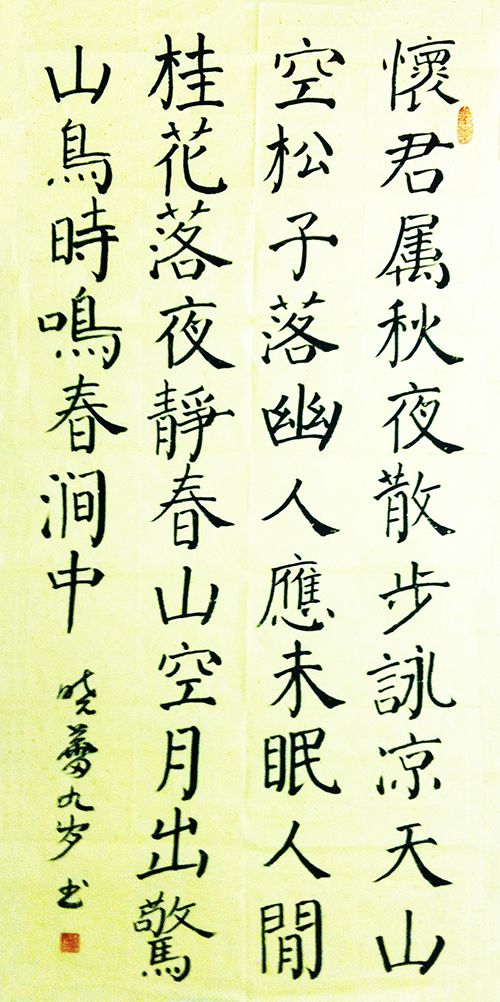 懷君属秋夜散步詠凉天山
空松子落幽人應未眠人間
桂花落夜靜春山空月出驚
山鳥時鳴春涧中
晓蕾九岁书